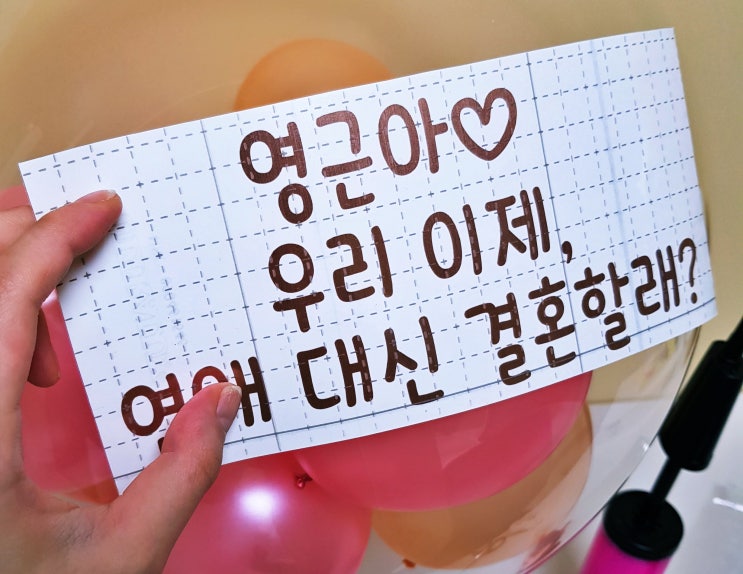 영근아♡
우리 이제,
연애 대신 결혼할래?